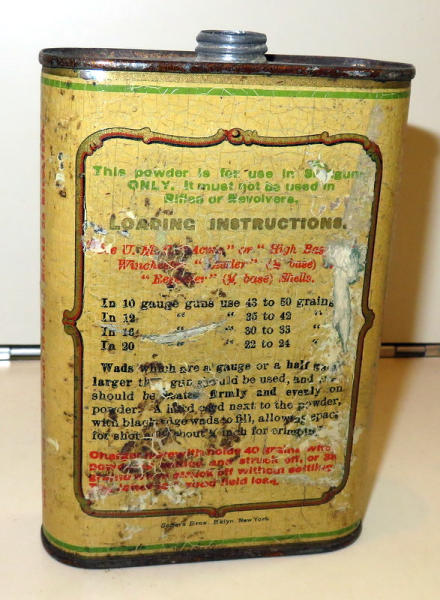 This powder is for use in
ONLY. It must not be used in
Rifles or Revolvers.
LOADING INSTRUCTIONS.
" or " High
" (¼ base)
" (¼ base) Shells.
In 10 gauge guns use 43 to 50 grains
In 12 " " 35 to 42 "
In 16 " " 30 to 35 "
In 20 " " 22 to 24 "
Wads which are a gauge or a half
larger gun should be used, and
should be firmly and evenly on
powder. A card next to the powder,
with black edge wads to fill, allowing space
for shot about inch for
holds 40 grains
and struck off, or
off without settling
good field load.
Bros. Bklyn. New York